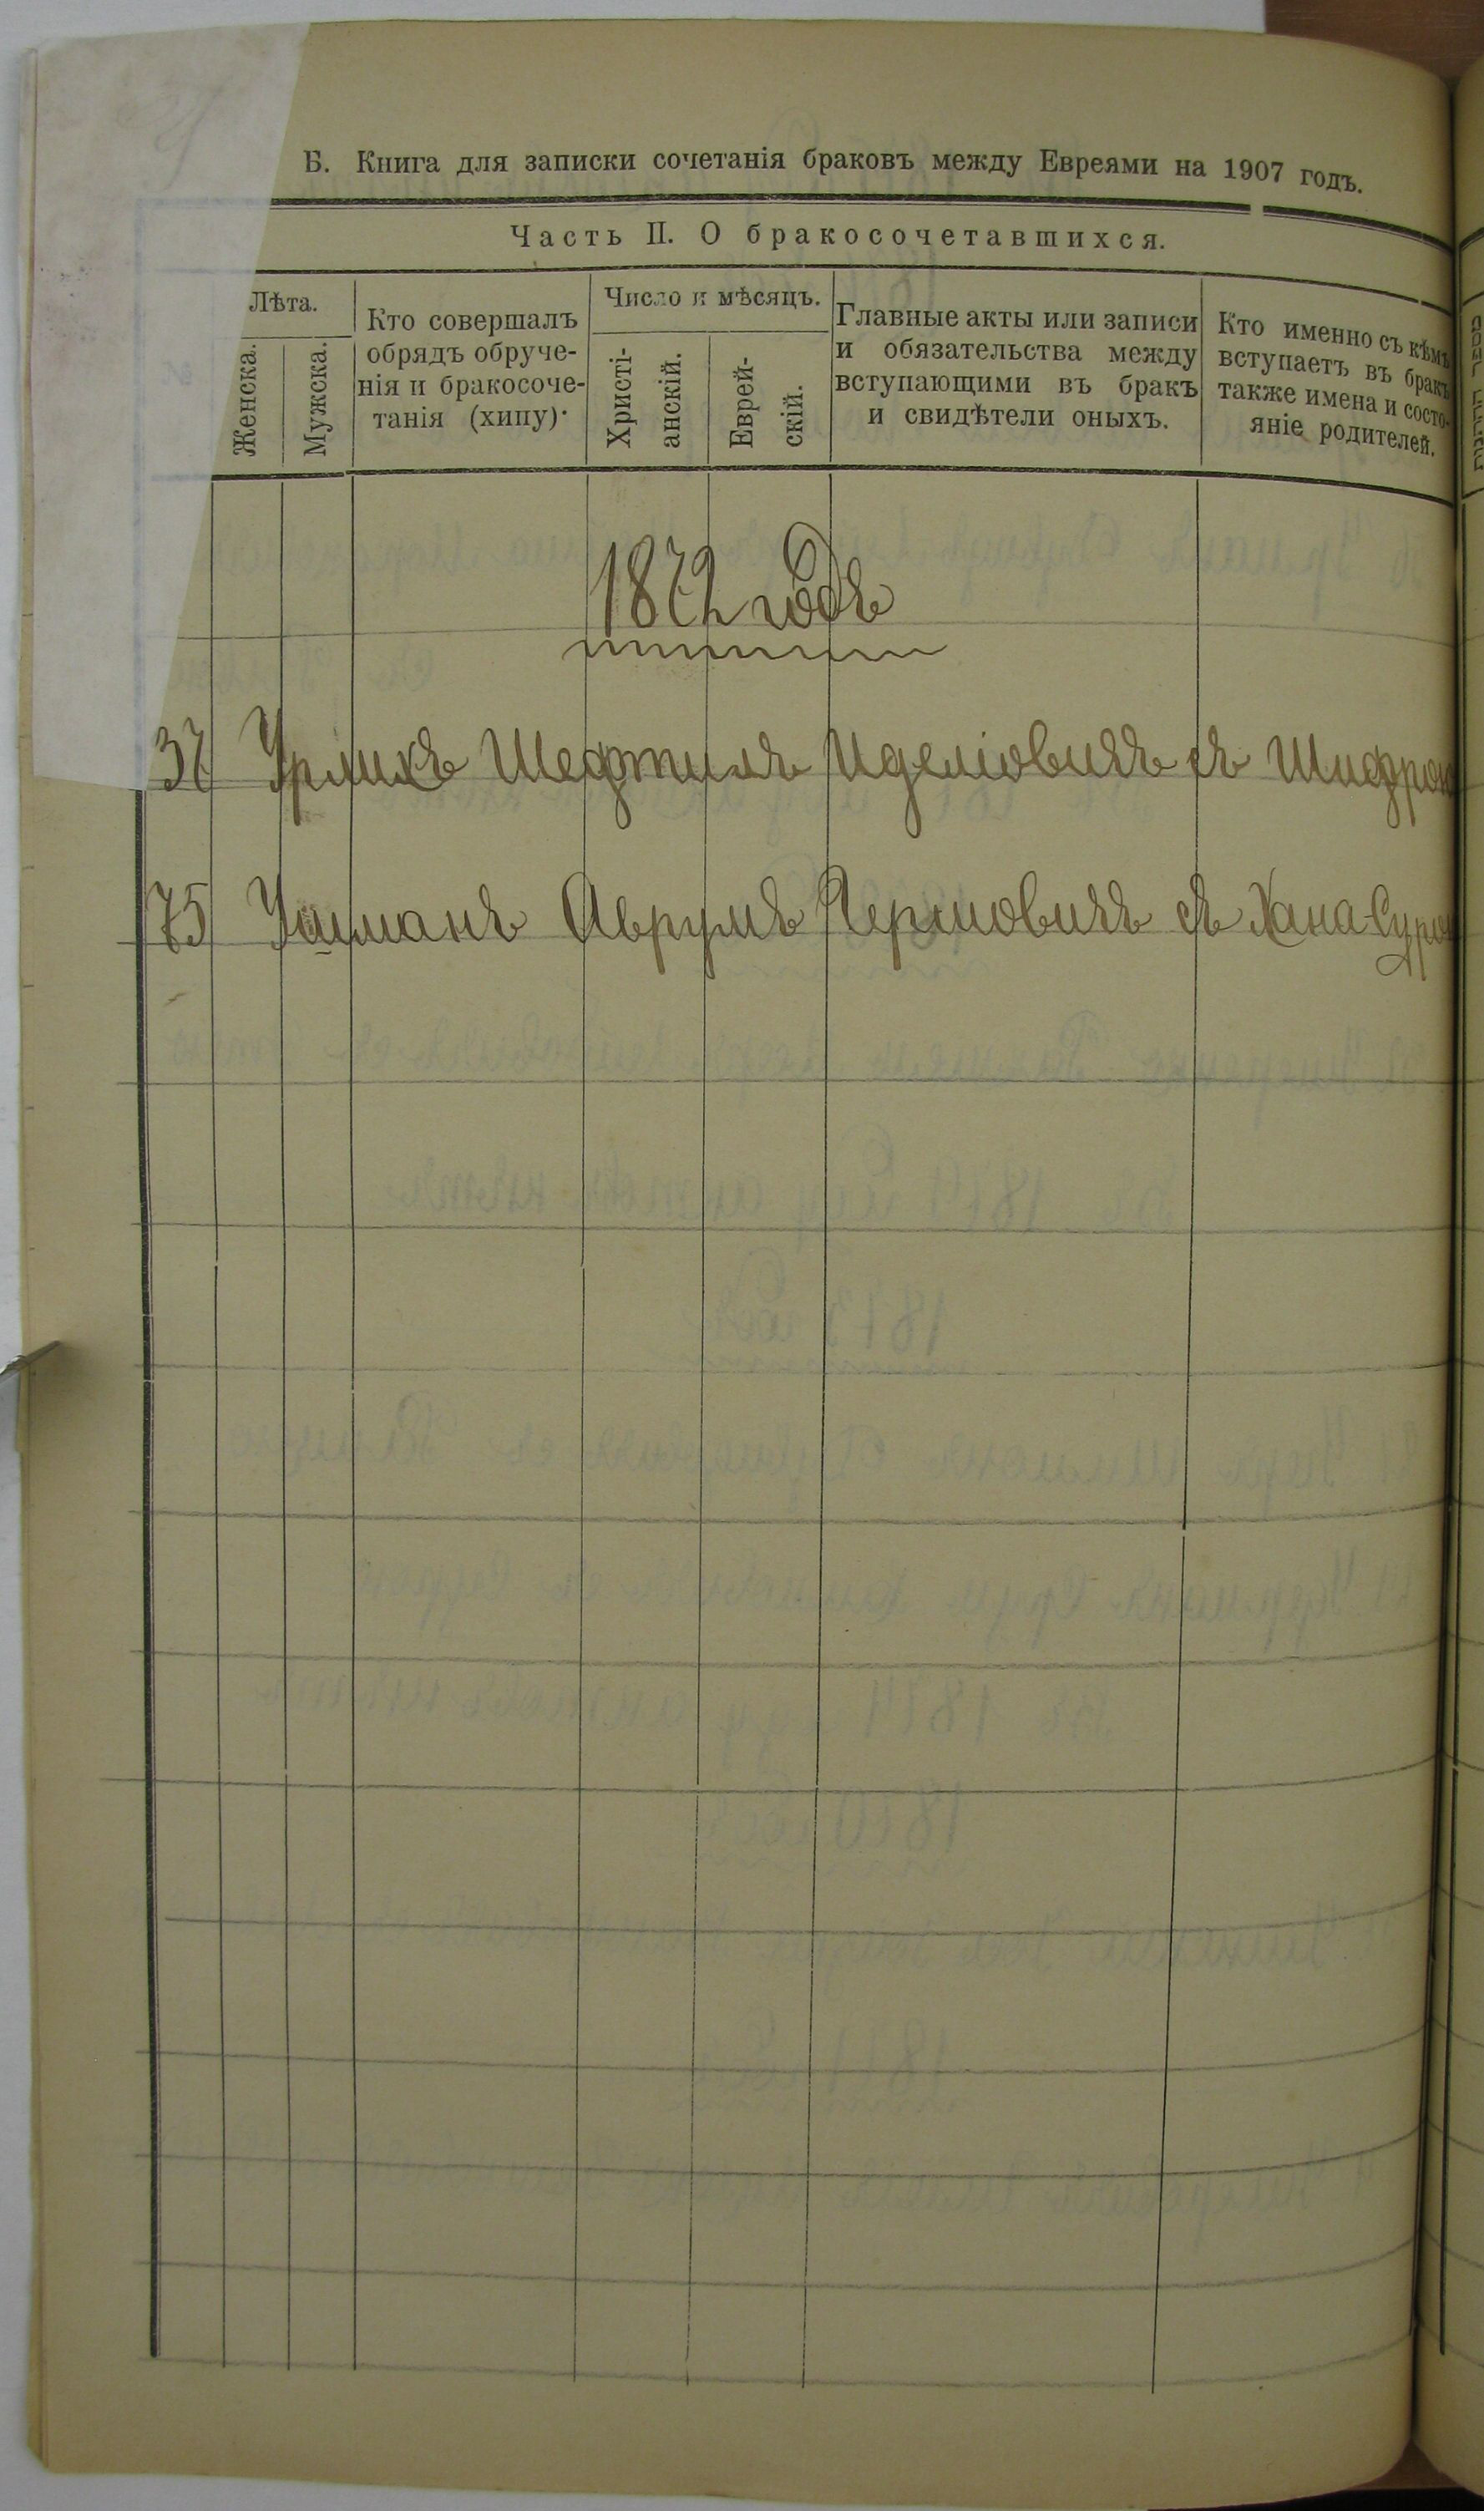 Б. Книга для записки сочетанія браковъ между Евреями на 1907 годъ.
Часть II. О бракосочетавшихся.
Лѣта.
Женска.
Мужска.
Кто совершалъ
обрядъ обруче-
нія и бракосоче-
танія (хипу).
Число и мѣсяцъ.
Христі-
анскій.
Еврей-
скій.
Главные акты или записи
и обязательства между
вступающими въ бракъ
и свидѣтели оныхъ.
Кто именно съ кѣмъ
вступаетъ въ бракъ
также имена и состо-
яніе родителей.
1872 годъ
37 Урлихъ Шефтиль Иделіовичъ съ Шифрою
75 Ушманъ Аврумъ Гершовичъ съ Хана-Сурою